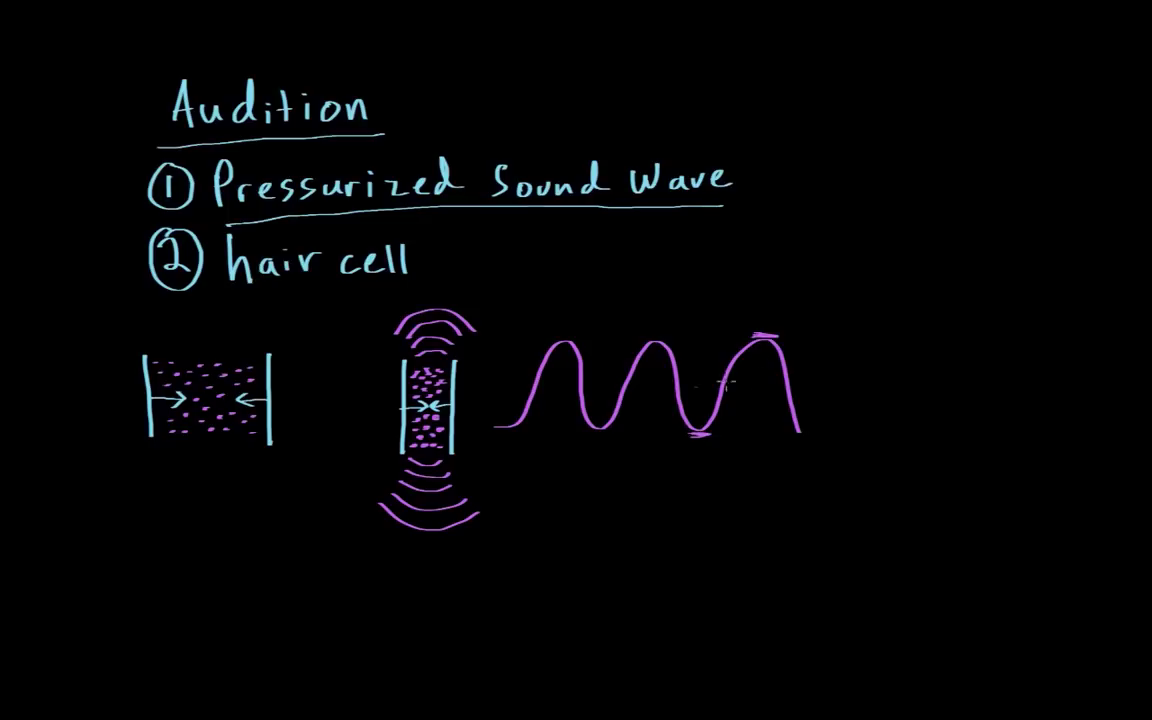 Audition
① Pressurized Sound Wave
② hair cell